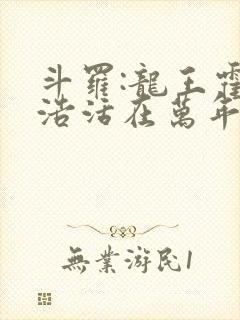 斗羅:龍王霍
浩活在萬年
無業游民1